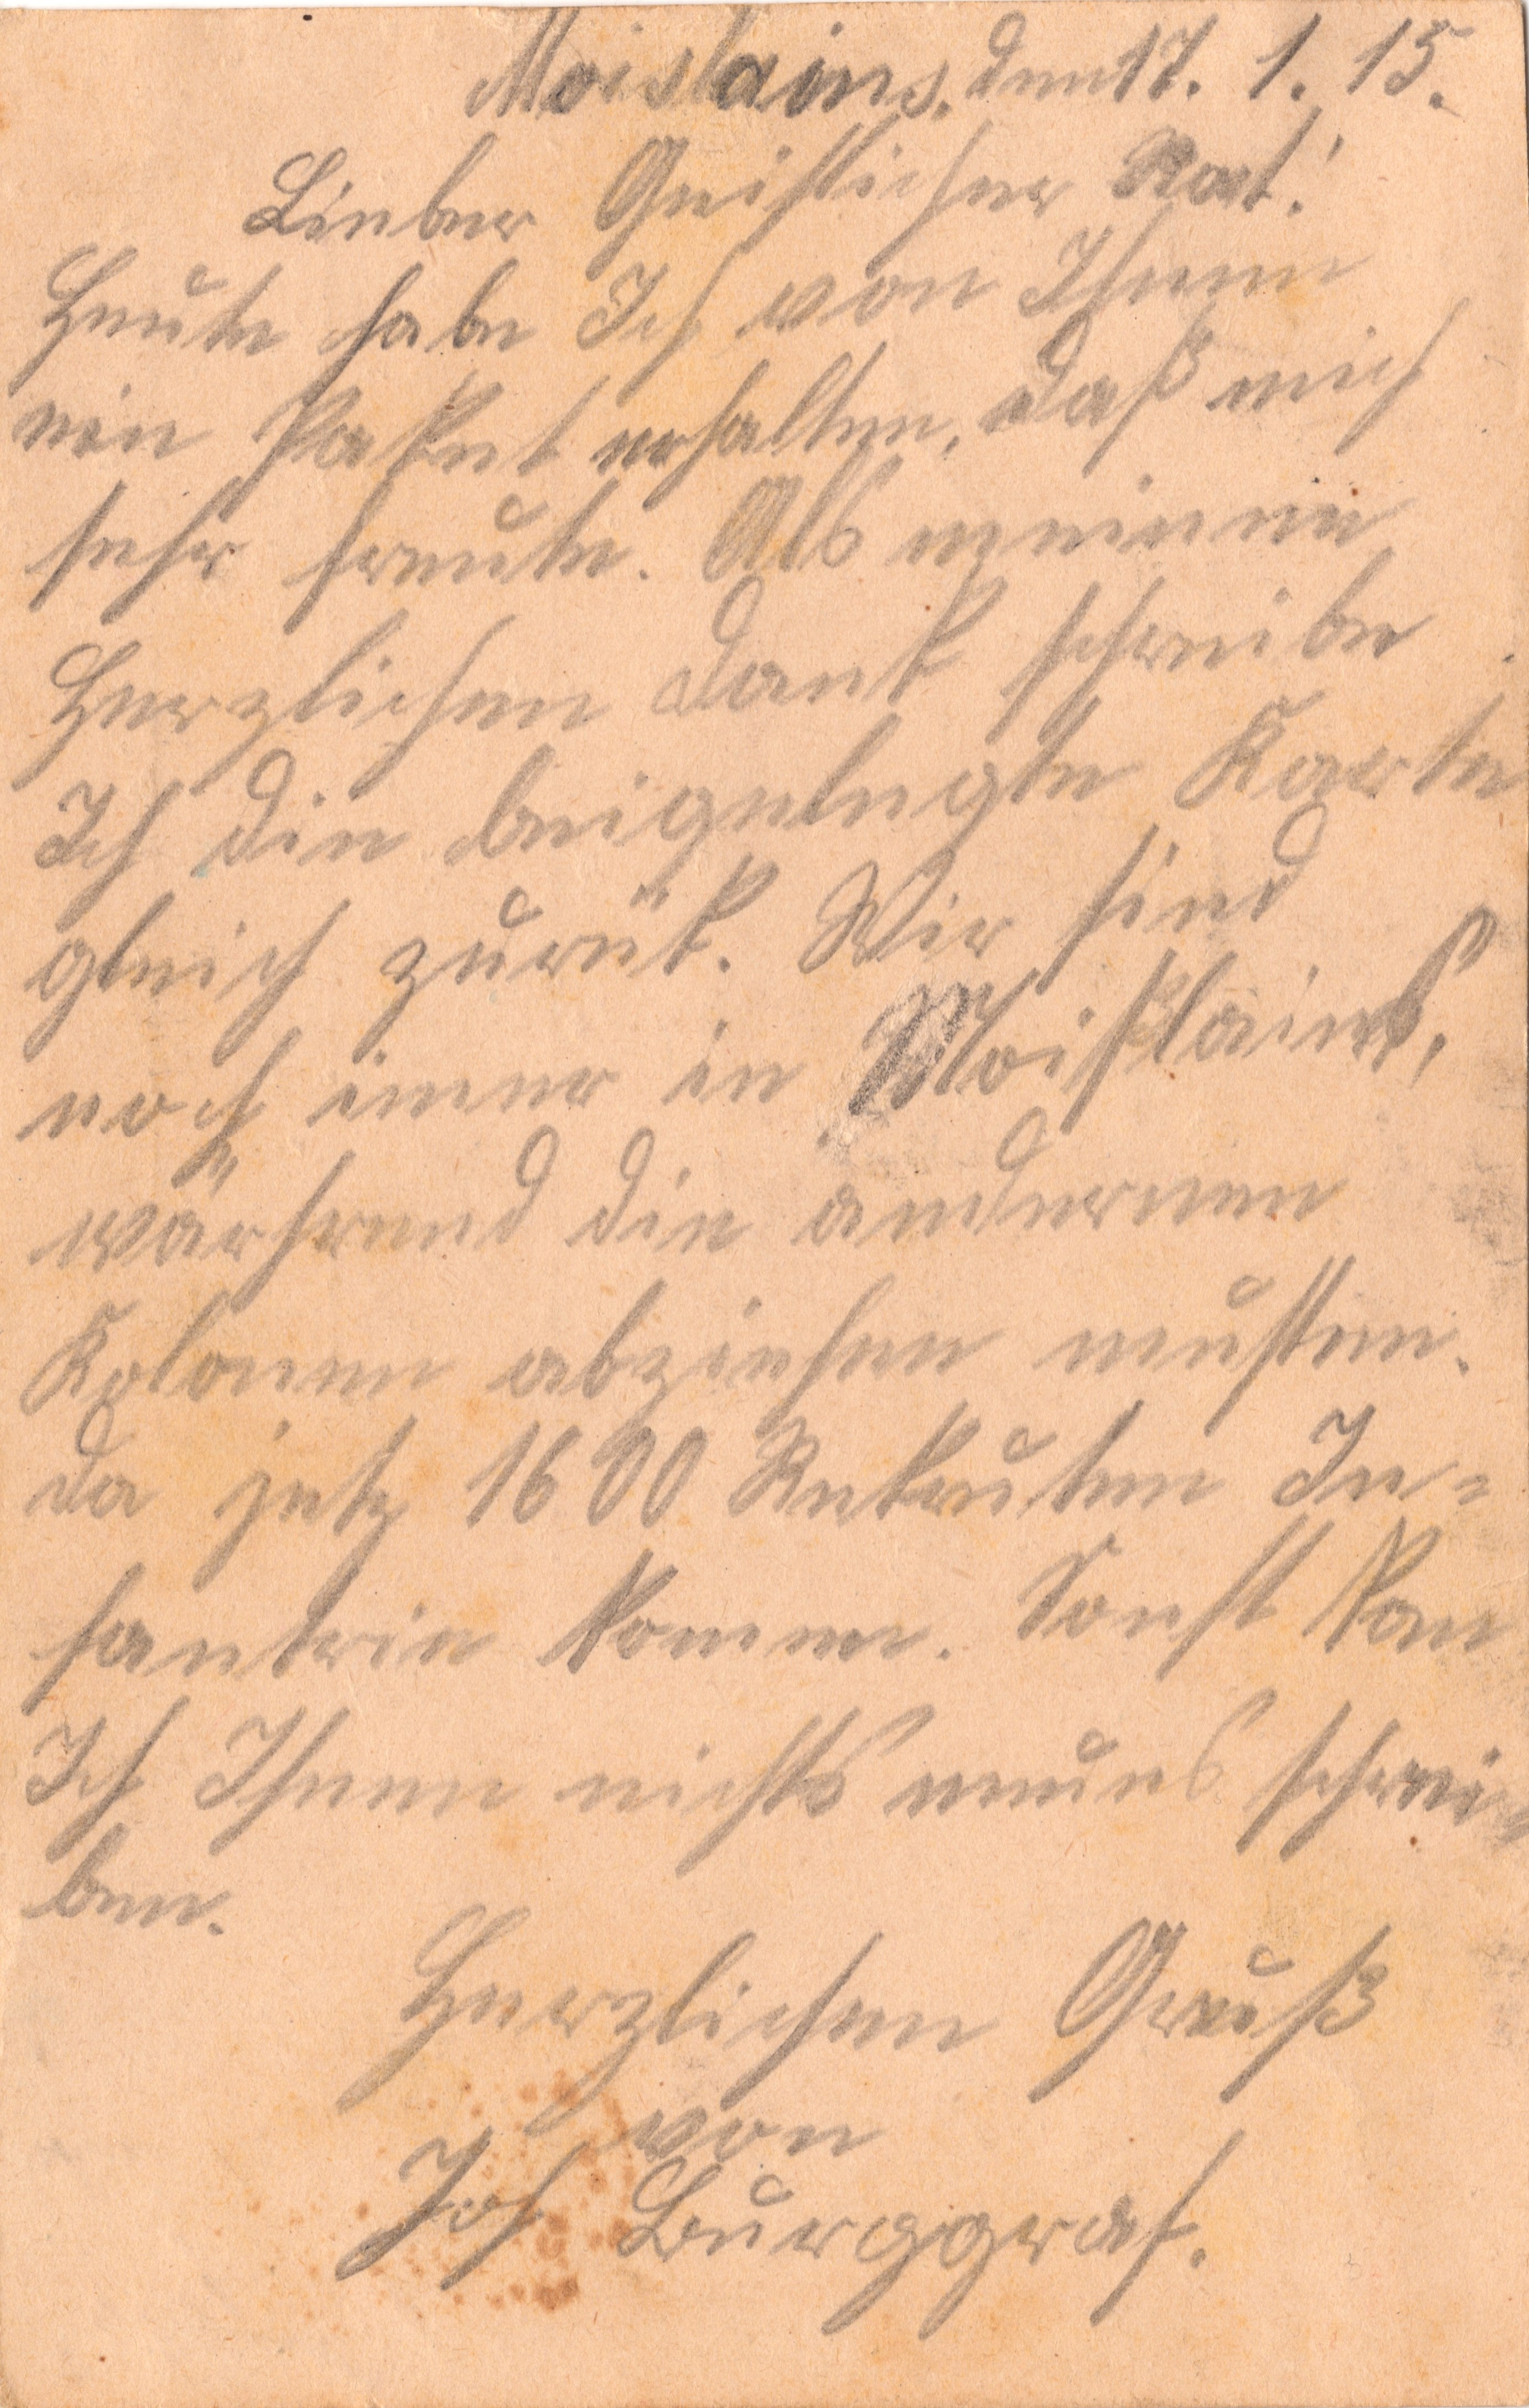 Moislains, den 17. 1. 15.
Lieber Geistlicher Rat!
Heute habe Ich von Ihnen
ein Paket erhalten, daß mich
sehr freute. Als meinen
Herzlichen Dank schreibe
Ich die beigelegte Karte
gleich zurük. Wir sind
noch imer in Moislains,
während die anderen
Kolonen abziehen musten.
da jetz 1600 Rekruten In-
fantrie kommen. Sonst kan
Ich Ihnen nichts neues schrei-
ben.
Herzlichen Gruß
von
Joh Burggraf.